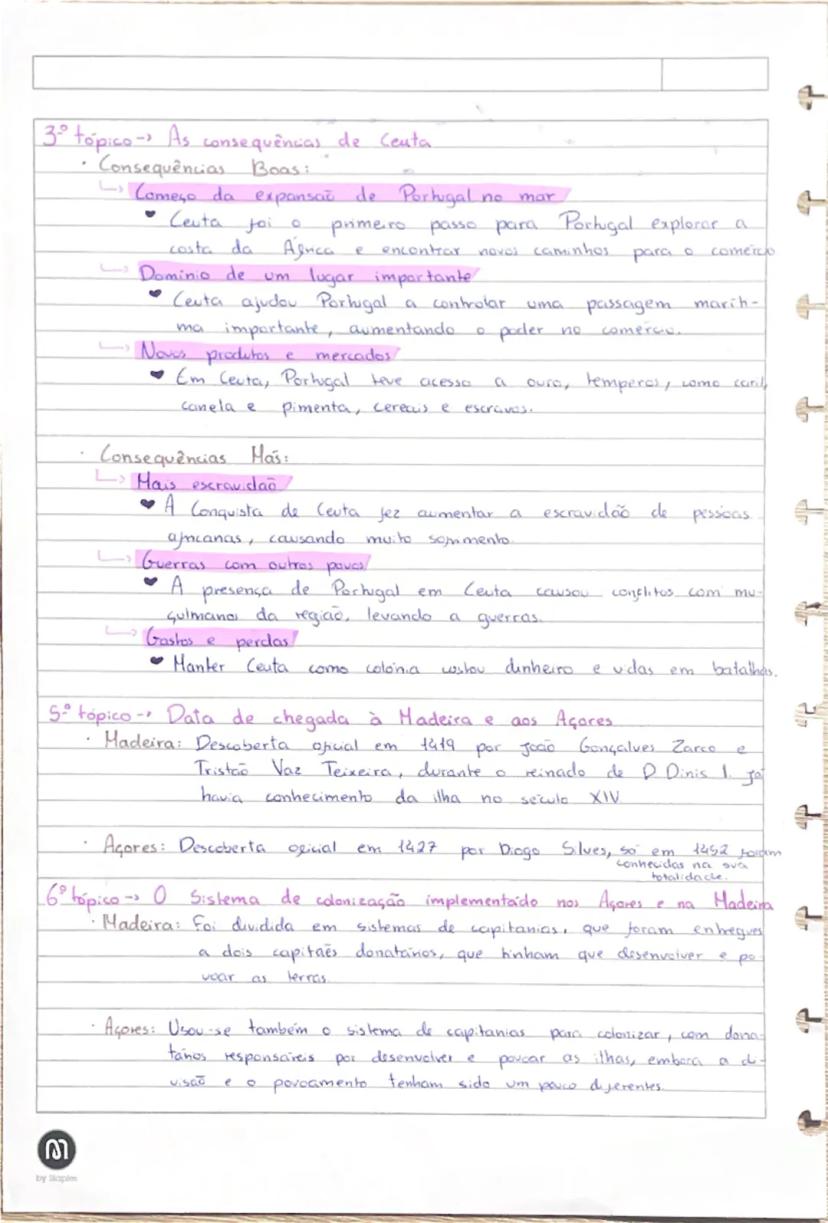 3º tópico → As consequências de Ceuta
· Consequências Boas:
↳ Começo da expansão de Portugal no mar
♥ Ceuta foi o primeiro passo para Portugal explorar a
costa da África e encontrar novos caminhos para o comércio
↳ Domínio de um lugar importante
♥ Ceuta ajudou Portugal a controlar uma passagem maríti-
ma importante, aumentando o poder no comércio.
↳ Novos produtos e mercados
♥ Em Ceuta, Portugal teve acesso a ouro, temperos, como caril,
canela e pimenta, cereais e escravos.
· Consequências Más:
↳ Mais escravidão
♥ A Conquista de Ceuta fez aumentar a escravidão de pessoas
africanas, causando muito sofrimento.
↳ Guerras com outros povos
♥ A presença de Portugal em Ceuta causou conflitos com mu-
çulmanos da região, levando a guerras.
↳ Gastos e perdas
♥ Manter Ceuta como colónia custou dinheiro e vidas em batalhas.
5º tópico → Data de chegada à Madeira e aos Açores
· Madeira: Descoberta oficial em 1419 por João Gonçalves Zarco e
Tristão Vaz Teixeira, durante o reinado de D Dinis I. já
havia conhecimento da ilha no século XIV
· Açores: Descoberta oficial em 1427 por Diogo Silves, só em 1452 foram
conhecidas na sua
totalidade.
6º tópico → O Sistema de colonização implementado nos Açores e na Madeira
· Madeira: Foi dividida em sistemas de capitanias, que foram entregues
a dois capitães donatários, que tinham que desenvolver e po
voar as terras.
· Açores: Usou-se também o sistema de capitanias para colonizar, com dona-
tários responsáveis por desenvolver e povoar as ilhas, embora a di-
visão e o povoamento tenham sido um pouco diferentes.
by Staples